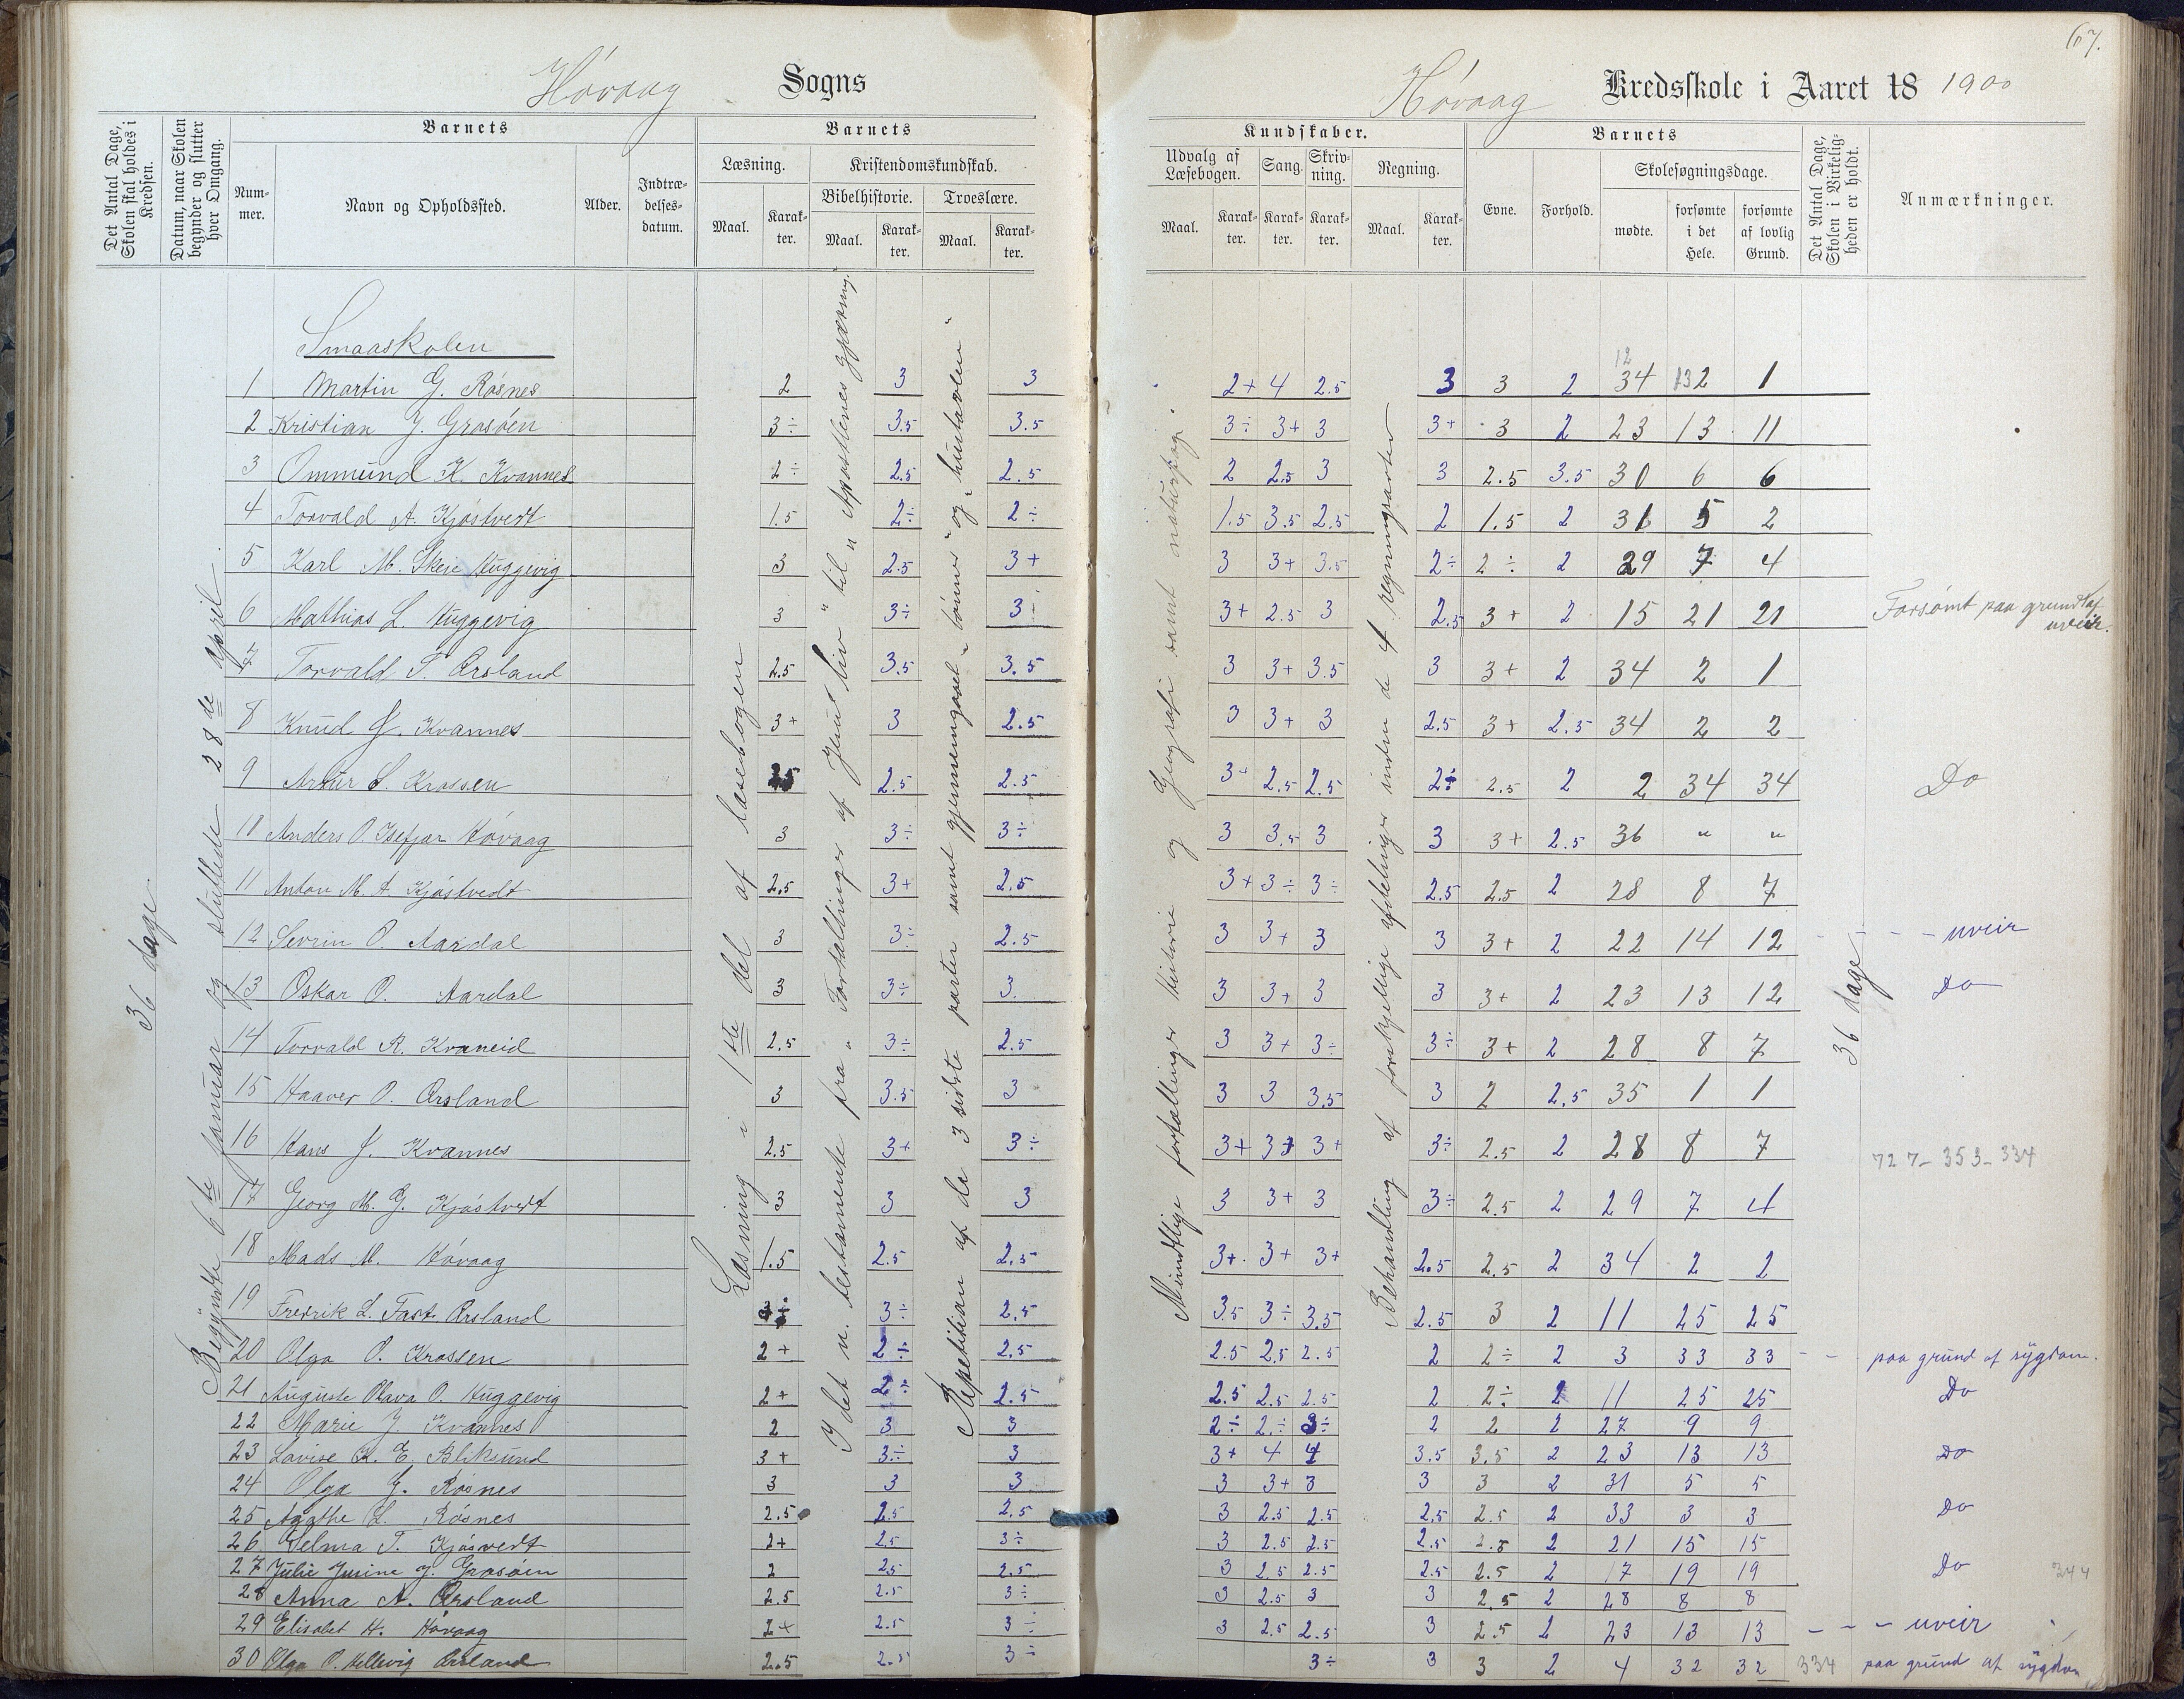 67.
Høvaag Sogns
Høvaag Kredsskole i Aaret 18 1900
Det Antal Dage, Skolen skal holdes i Kredsen.
Datum, naar Skolen begynder og slutter hver Omgang.
Barnets
Num-mer.
Navn og Opholdssted.
Alder.
Indtræ-delses-datum.
Barnets
Læsning.
Maal.
Karak-ter.
Kristendomskundskab.
Bibelhistorie.
Maal.
Karak-ter.
Troeslære.
Maal.
Karak-ter.
Kundskaber.
Udvalg af Læsebogen.
Maal.
Karak-ter.
Sang.
Karak-ter.
Skriv-ning.
Karak-ter.
Regning.
Maal.
Karak-ter.
Barnets
Evne.
Forhold.
Skolesøgningsdage.
mødte.
forsømte i det Hele.
forsømte af lovlig Grund.
Det Antal Dage, Skolen i Virkelig-heden er holdt.
Anmærkninger.
36 dage
Begyndte 6te januar og sluttede 28de april.
Læsning i 1ste del af læsebogen
I det n. testamente fra "Fortællinger af Jesu liv" til "Apostlenes gjerning."
Repetition af de 3 sidste parter samt gjennemgaaet "bønner" og "hustavlen"
Mundtlige fortællinger historie og Geografi samt naturfag.
Behandling af forskjellige afdelinger inden de 4 regningsarter
36 dage
Smaaskolen
12
1 Martin G. Røsnes 2 3 3 2+ 4 2.5 3 3 2 34 2 1
2 Kristian J. Grosøen 3÷ 3.5 3.5 3÷ 3+ 3 3+ 3 2 23 13 11
3 Ommund K. Kvannes 2÷ 2.5 2.5 2 2.5 3 3 2.5 3.5 30 6 6
4 Torvald A. Kjøstvedt 1.5 2÷ 2÷ 1.5 3.5 2.5 2 1.5 2 31 5 2
5 Karl M. Skeie Huggevig 3 2.5 3+ 3 3+ 3.5 2÷ 2÷ 2 29 7 4
6 Mathias L. Huggevig 3 3÷ 3÷ 3+ 2.5 3 2.5 3+ 2 15 21 21 Forsømt paa grund af uveir.
7 Torvald S.Ørsland 2.5 3.5 3.5 3 3+ 3.5 3 3+ 2 34 2 1
8 Knud J. Kvannes 3+ 3 2.5 3 3+ 3 2.5 3+ 2.5 34 2 2
9 Artur S. Krossen 2.5 2.5 2.5 3+ 2.5 2.5 2÷ 2.5 2 2 34 34 Do
10 Anders O. Isefjær Høvaag 3 3÷ 3÷ 3 3.5 3 3 3+ 2.5 36 " "
11 Anton M. A. Kjøstvedt 2.5 3+ 2.5 3+ 3÷ 3÷ 2.5 2.5 2 28 8 7
12 Sevrin O. Aardal 3 3÷ 2.5 3 3+ 3 3 3+ 2 22 14 12 - - - uveir
13 Oskar O. Aardal 3 3÷ 3. 3 3+ 3 3 3+ 2 23 13 12 Do
14 Torvald R. Kvaneid 2.5 3÷ 2.5 3 3+ 3÷ 3÷ 3+ 2 28 8 7
15 Haaver O. Ørsland 3 3.5 3 3 3 3.5 3 2 2.5 35 1 1
16 Hans J. Kvannes 2.5 3+ 3÷ 3+ 3+ 3+ 3÷ 2.5 2 28 8 7
727-353-334
17 Georg M. G. Kjøstvedt 3 3 3 3 3+ 3 3÷ 2.5 2 29 7 4
18 Mads M. Høvaag 1.5 2.5 2.5 3+ 3+ 3+ 2.5 2.5 2 34 2 2
19 Fredrik L. Fast. Ørsland 3÷ 3÷ 2.5 3.5 3÷ 3.5 2.5 3 2 11 25 25
20 Olga O. Krossen 2+ 2÷ 2.5 2.5 2.5 2.5 2 2÷ 2 3 33 33 - - paa grund af sygdom.
21 Auguste Olava O. Huggevig 2+ 2÷ 2.5 2.5 2.5 2.5 2 2÷ 2 11 25 25 Do
22 Marie J. Kvannes 2 3 3 2÷ 2÷ 3÷ 2 2 2 27 9 9
23 Lovise K. E. Bliksund 3+ 3÷ 3 3+ 4 4 3.5 3.5 2 23 13 13 Do
24 Olga G. Røsnes 3 3 3 3 3+ 3 3 3 2 31 5 5
25 Agathe L. Røsnes 2.5 2.5 2.5 3 2.5 2.5 2.5 2.5 2 33 3 3 Do
26 Selma T. Kjøsvedt 2+ 2.5 3÷ 3 2.5 2.5 2.5 2.5 2 21 15 15
27 Julie Jusine J. Grosøen 2 2.5 2.5 3 2.5 2.5 2.5 2.5 2 17 19 19 Do 344
28 Anna A. Ørsland 2.5 2.5 3÷ 3 2.5 3 3 2.5 2 28 8 8
29 Elisabet H. Høvaag 2+ 2.5 3÷ 3 2.5 2.5 3 2.5 2 23 13 13 - - - uveir
30 Olga O. Hellevig Ørsland 2.5 2.5 3÷ 3÷ 3 3 2 4 32 32 334 paa grund af sygdom